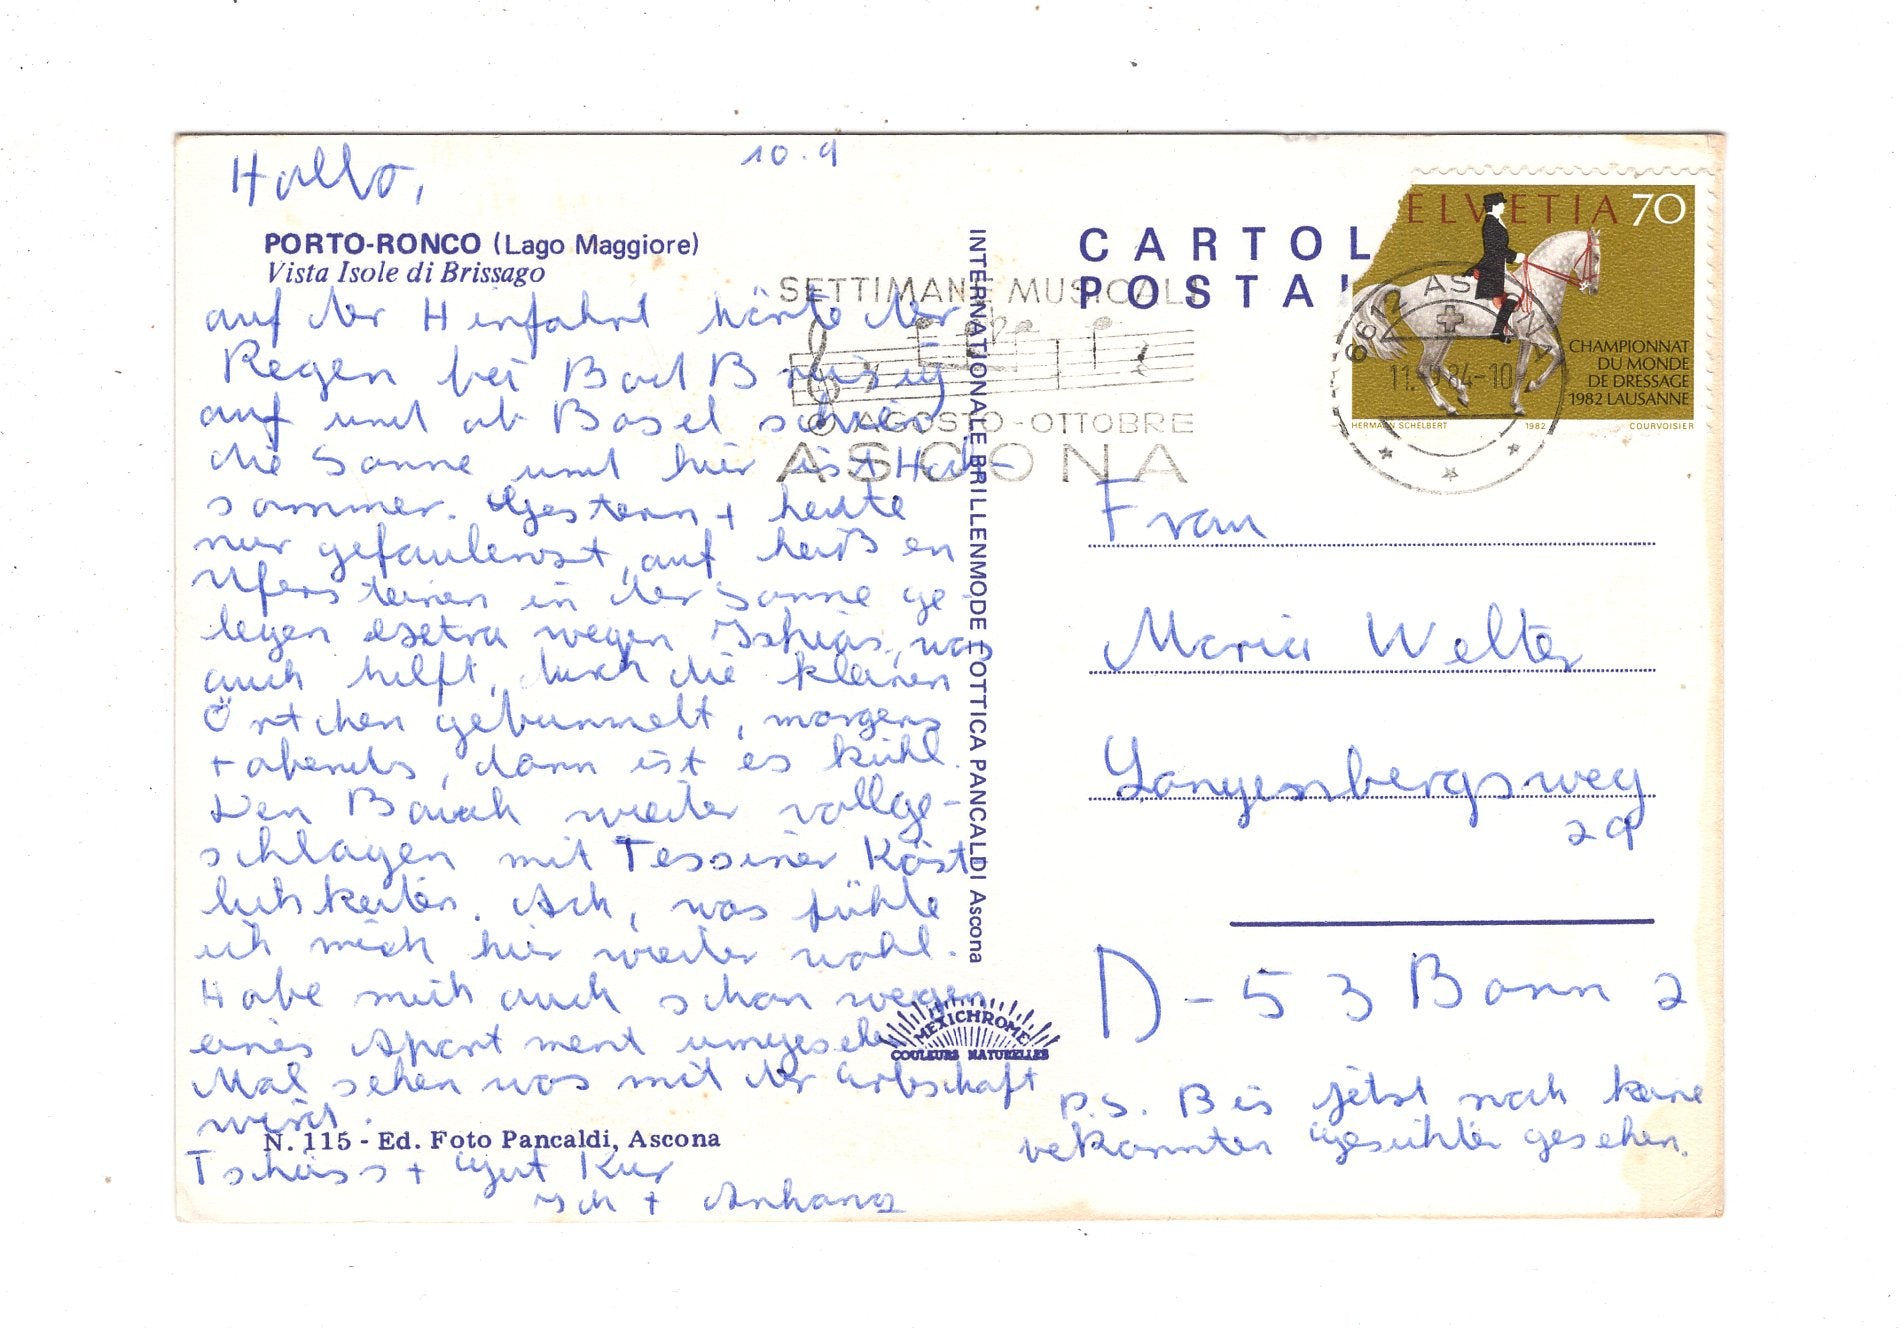 Hallo,
10.9
PORTO-RONCO (Lago Maggiore)
Vista Isole di Brissago
auf der Hinfahrt hörte der
Regen bei Bad Breisig
auf und ab Basel schien
die Sonne und hier ist Hoch-
sommer. Gestern + heute
nur gefaulenzt, auf heißen
Ufersteinen in der Sonne ge-
legen extra wegen Ischias, was
auch hilft, durch die kleinen
Örtchen gebummelt, morgens
+ abends, dann ist es kühl.
Den Bauch wieder vollge-
schlagen mit Tessiner Köst
lichkeiten. Ach, was fühle
ich mich hier wieder wohl.
Habe mich auch schon wegen
eines Apartment umgesehen
Mal sehen was mit der Erbschaft
wird.
N. 115 - Ed. Foto Pancaldi, Ascona
Tschüss + gut Kur
Ich + Anhang
INTERNATIONALE BRILLENMODE - OTTICA PANCALDI Ascona
MEXICHROME
COULEURS NATURELLES
SETTIMANE MUSICALI
AGOSTO - OTTOBRE
ASCONA
CARTOL
POSTAL
ELVETIA 70
CHAMPIONNAT
DU MONDE
DE DRESSAGE
1982 LAUSANNE
HERMANN SCHELBERT 1982 COURVOISIER
6612 ASCONA
11.-9.84-10
Frau
Maria Welter
Langenbergsweg
29
D-53 Bonn 2
P.S. Bis jetzt noch keine
bekannten Gesichter gesehen.